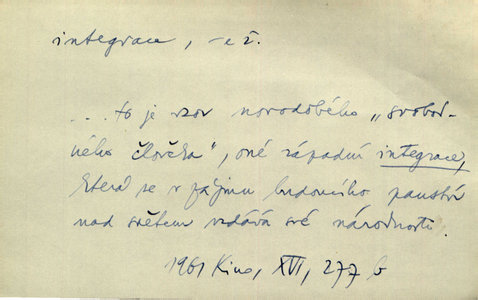 integrace, -e ž.
... to je vzor novodobého „svobod-
ného člověka“, oné západní integrace,
která se v zájmu budoucího panství
nad světem vzdává své národnosti.
1961 Kino, XVI, 277 b